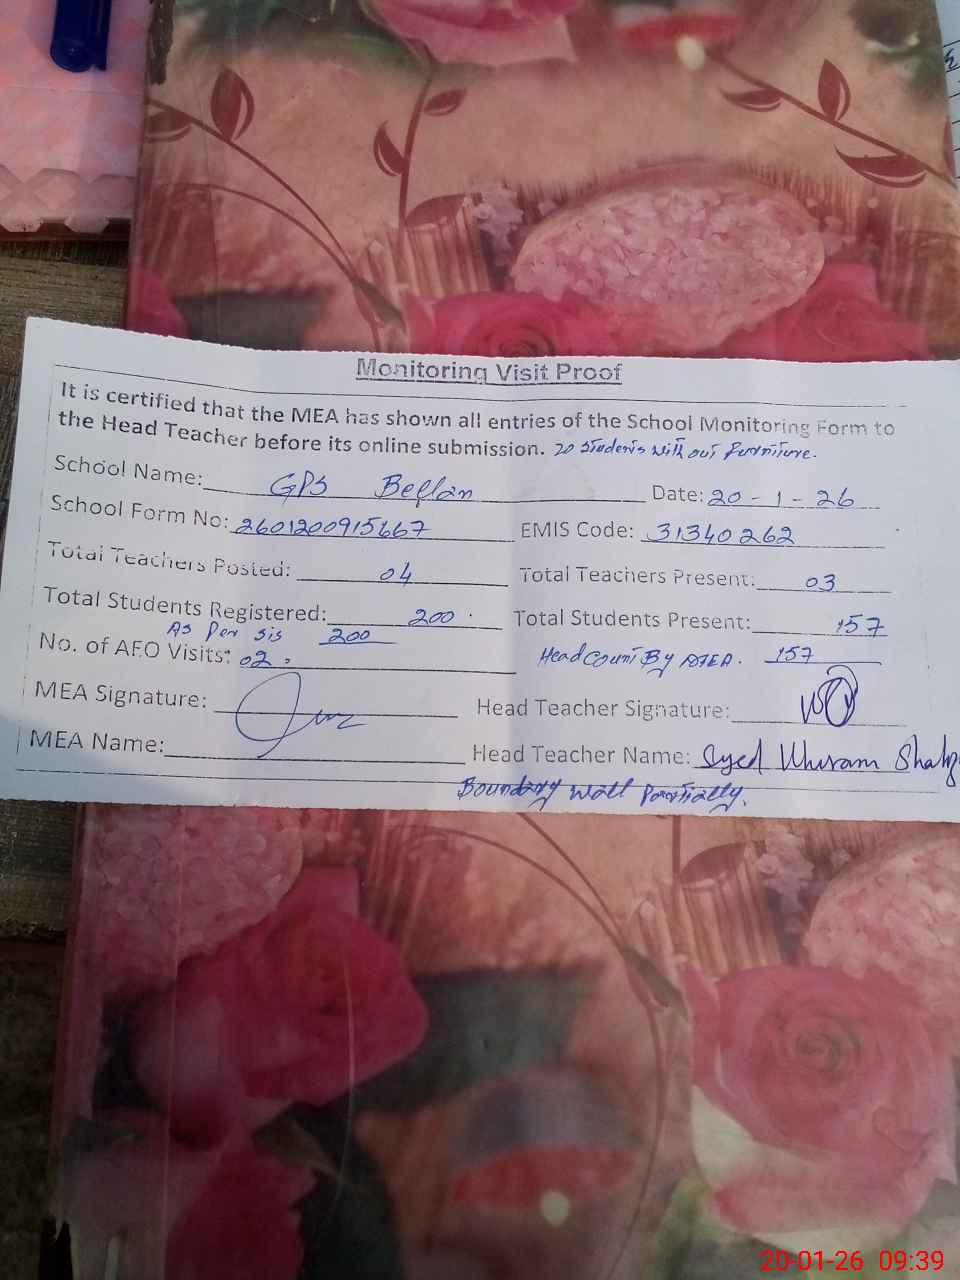 Monitoring Visit Proof
It is certified that the MEA has shown all entries of the School Monitoring Form to
the Head Teacher before its online submission. 20 Students with out furniture.
School Name: GPS Beflan Date: 20 - 1 - 26
School Form No: 2601200915667 EMIS Code: 31340262
Total Teachers Posted: 04 Total Teachers Present: 03
Total Students Registered: 200 Total Students Present: 157
As Per Sis 200
No. of AEO Visits: 02 Head Count By MEA. 157
MEA Signature: Head Teacher Signature:
MEA Name: Head Teacher Name: Syed Khuram
Boundary wall Partially.
20-01-26 09:39